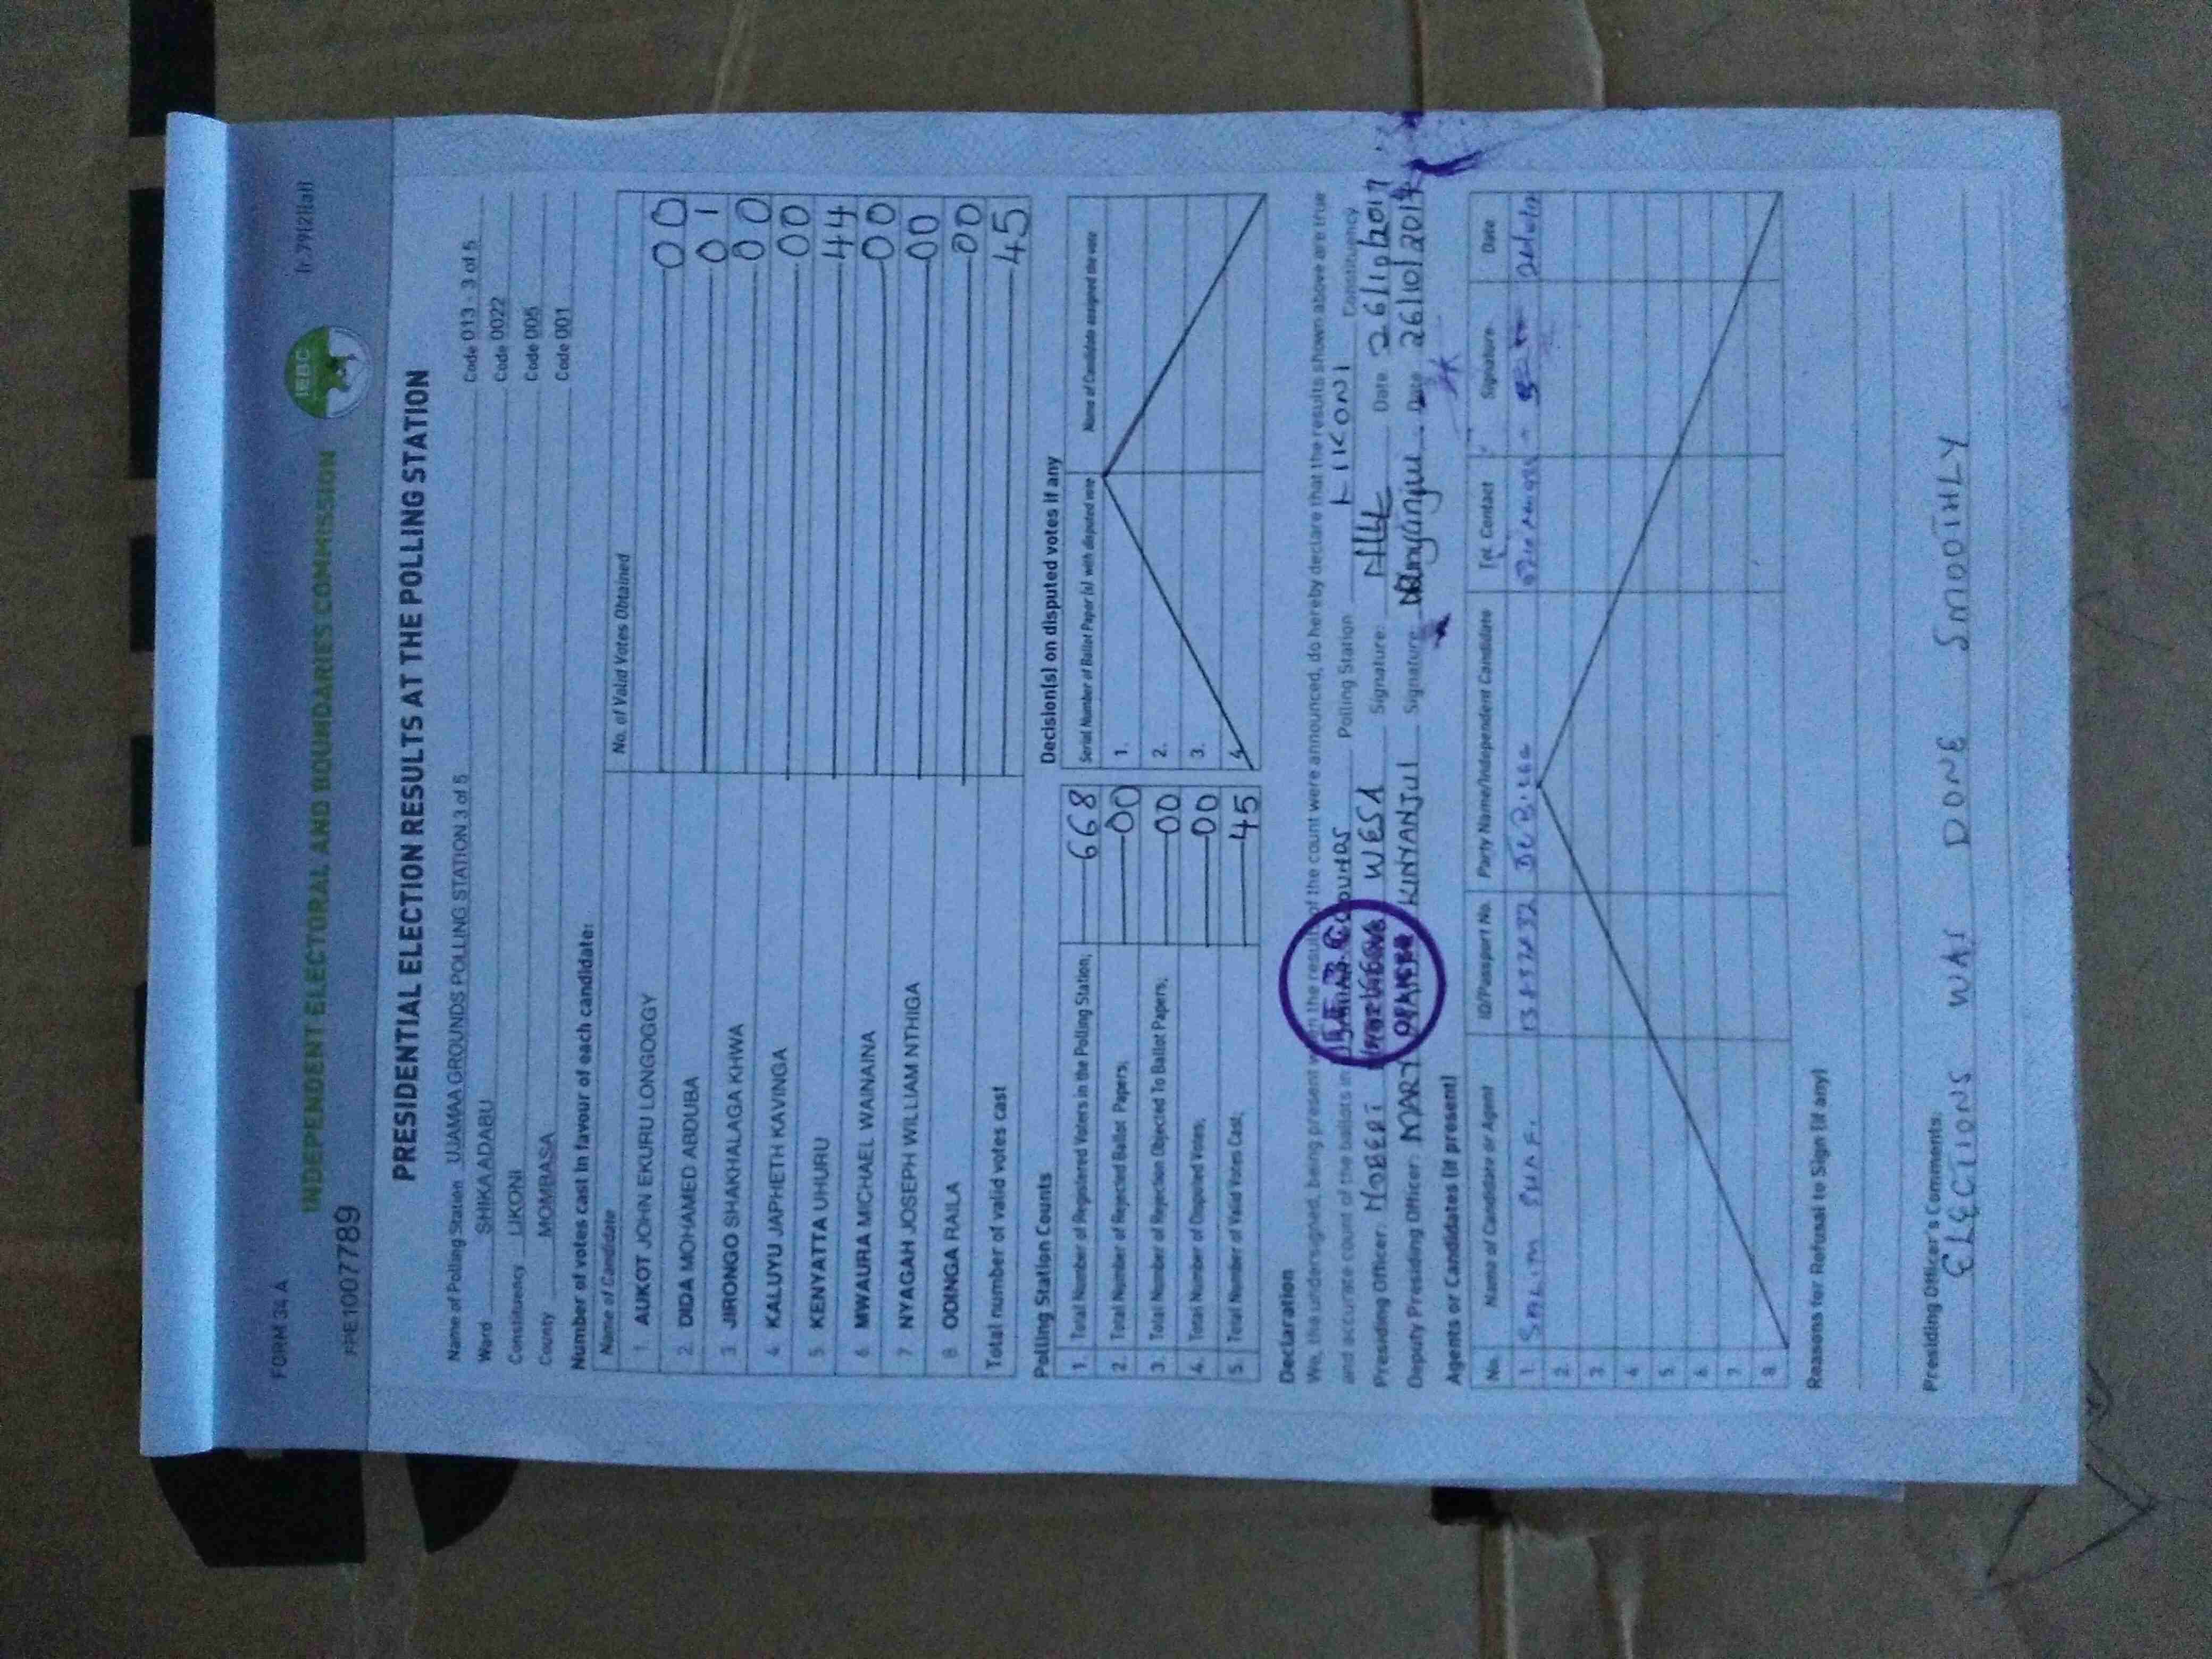 FORM 34 A
r. 79(2)(a)
IEBC
INDEPENDENT ELECTORAL AND BOUNDARIES COMMISSION
PRE1007789
PRESIDENTIAL ELECTION RESULTS AT THE POLLING STATION
Name of Polling Station UJAMAA GROUNDS POLLING STATION 3 of 5 Code 013 - 3 of 5
Ward SHIKA ADABU Code 0022
Constituency LIKONI Code 005
County MOMBASA Code 001
Number of votes cast in favour of each candidate:
Name of Candidate No. of Valid Votes Obtained
1. AUKOT JOHN EKURU LONGOGGY 00
2. DIDA MOHAMED ABDUBA 01
3. JIRONGO SHAKHALAGA KHWA 00
4. KALUYU JAPHETH KAVINGA 00
5. KENYATTA UHURU 44
6. MWAURA MICHAEL WAINAINA 00
7. NYAGAH JOSEPH WILLIAM NTHIGA 00
8. ODINGA RAILA 00
Total number of valid votes cast 45
Polling Station Counts
1. Total Number of Registered Voters in the Polling Station; 668
2. Total Number of Rejected Ballot Papers; 00
3. Total Number of Rejection Objected To Ballot Papers; 00
4. Total Number of Disputed Votes; 00
5. Total Number of Valid Votes Cast; 45
Decision(s) on disputed votes if any
Serial Number of Ballot Paper (s) with disputed vote Name of Candidate assigned the vote
1.
2.
3.
4.
Declaration
We, the undersigned, being present when the results of the count were announced, do hereby declare that the results shown above are true
and accurate count of the ballots in Polling Station LIKONI Constituency
Presiding Officer: WESA Signature: Date 26/10/2017
Deputy Presiding Officer: MARY KINYANJUI Signature: Date 26/10/2017
Agents or Candidates (if present)
No. Name of Candidate or Agent ID/Passport No. Party Name/Independent Candidate Tel. Contact Signature Date
1. SALIM JUBILEE
2.
3.
4.
5.
6.
7.
8.
Reasons for Refusal to Sign (if any)
Presiding Officer's Comments:
ELECTIONS WAS DONE SMOOTHLY